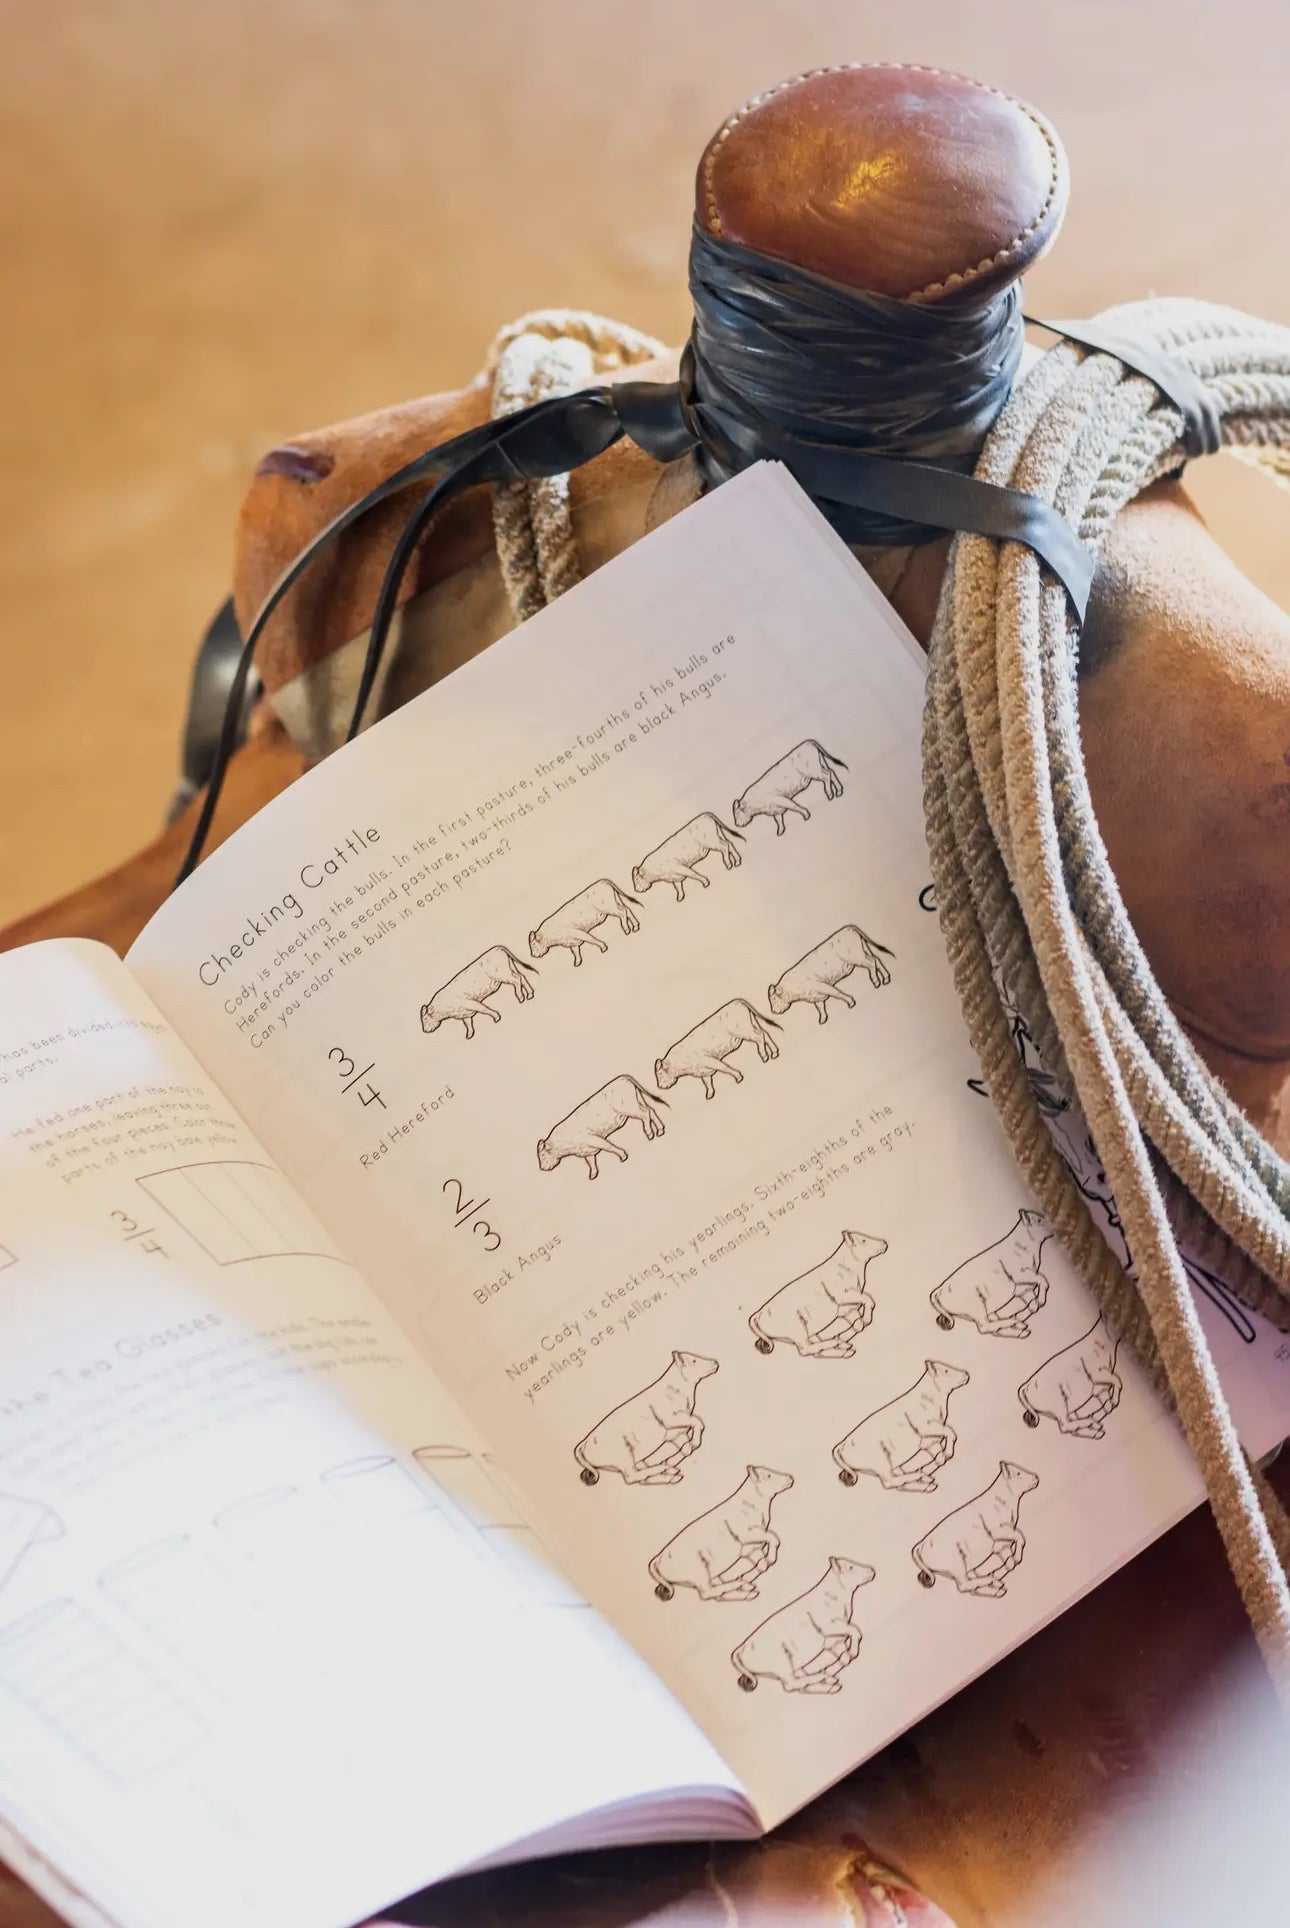 has been divided into
al parts.
He fed one part of the hay to
the horses, leaving three out
of the four pieces. Color three
parts of the hay bale yellow
3
4
the Tea Glasses
Checking Cattle
Cody is checking the bulls. In the first pasture, three-fourths of his bulls are
Herefords. In the second pasture, two-thirds of his bulls are black Angus.
Can you color the bulls in each pasture?
3
4
Red Hereford
2
3
Black Angus
Now Cody is checking his yearlings. Sixth-eighths of the
yearlings are yellow. The remaining two-eighths are gray.